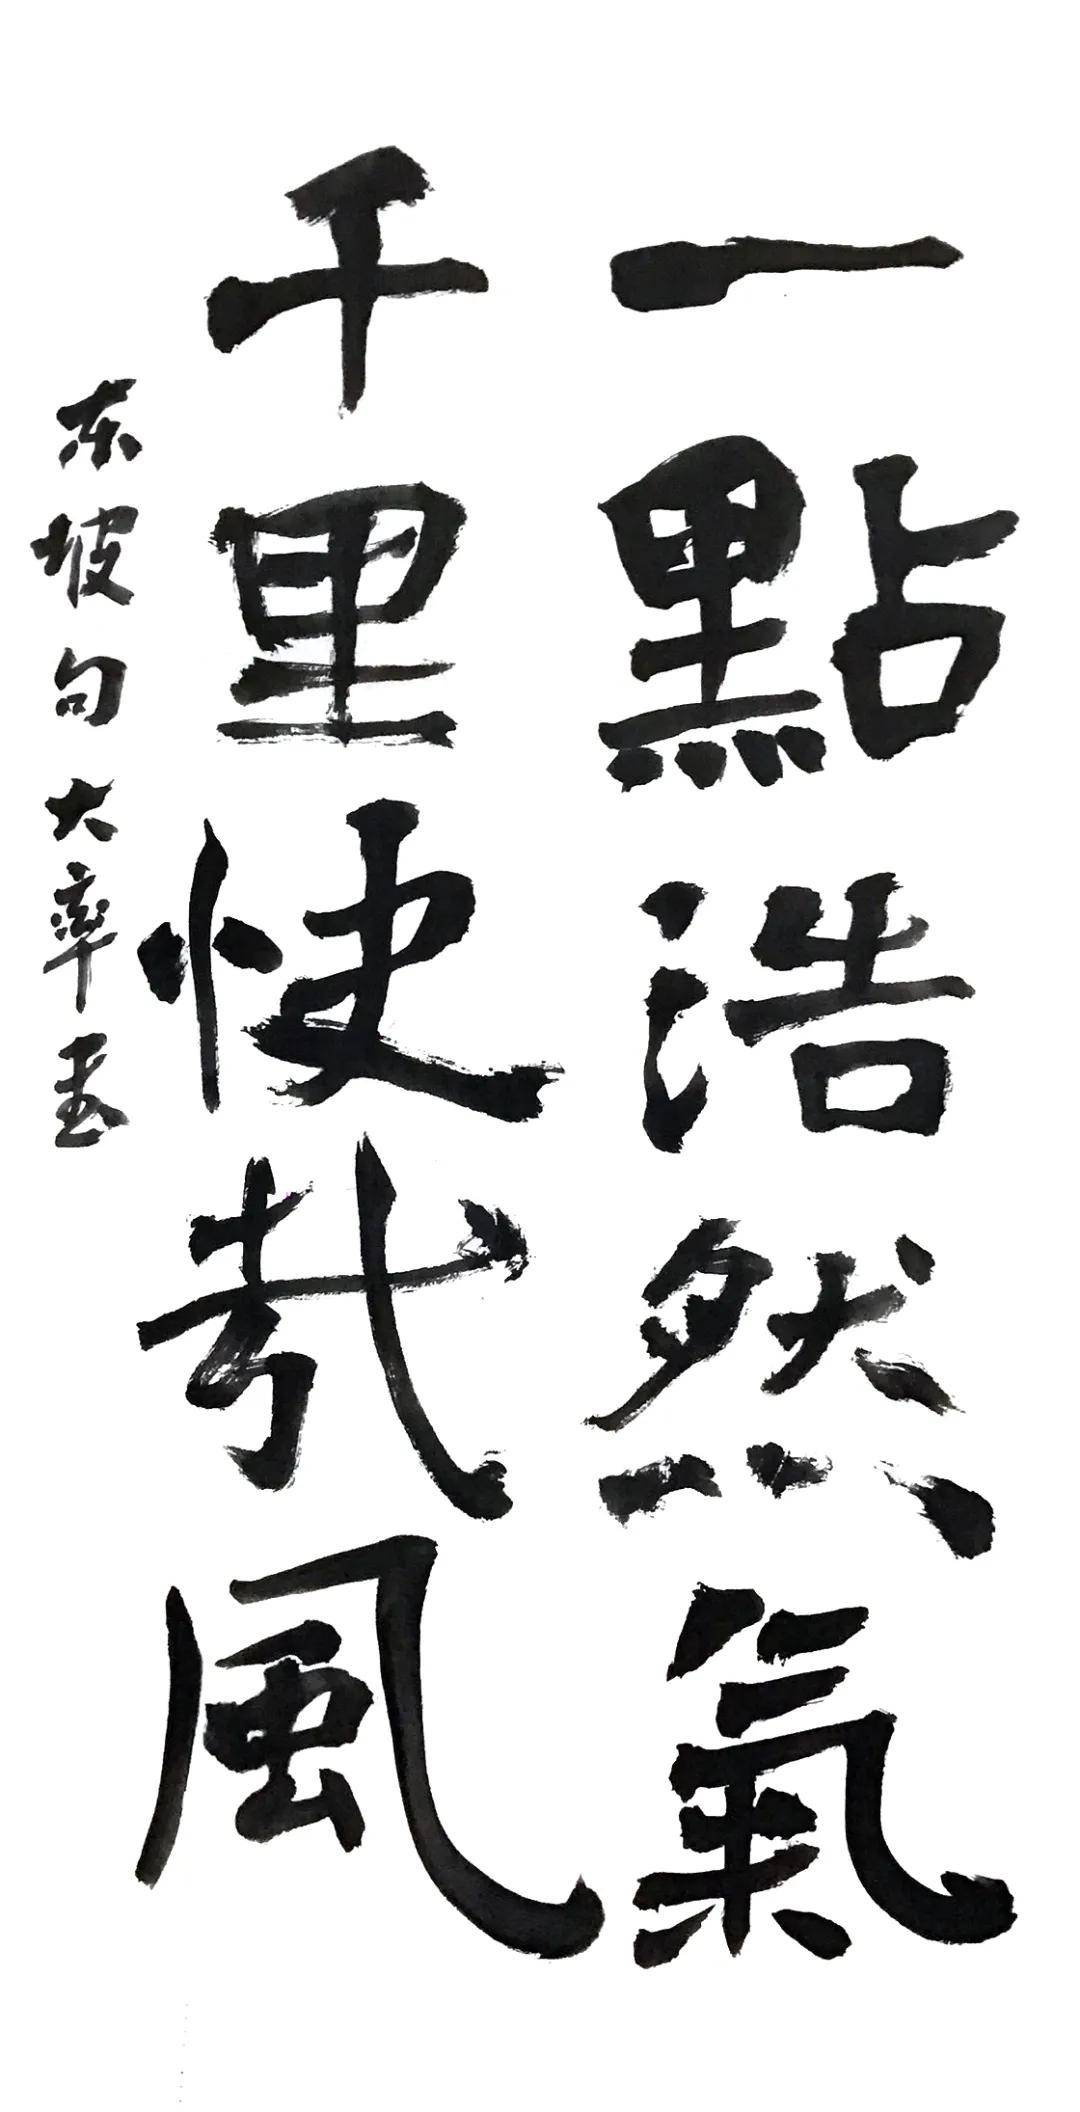 一點浩然氣
千里快哉風
东坡句 大率書